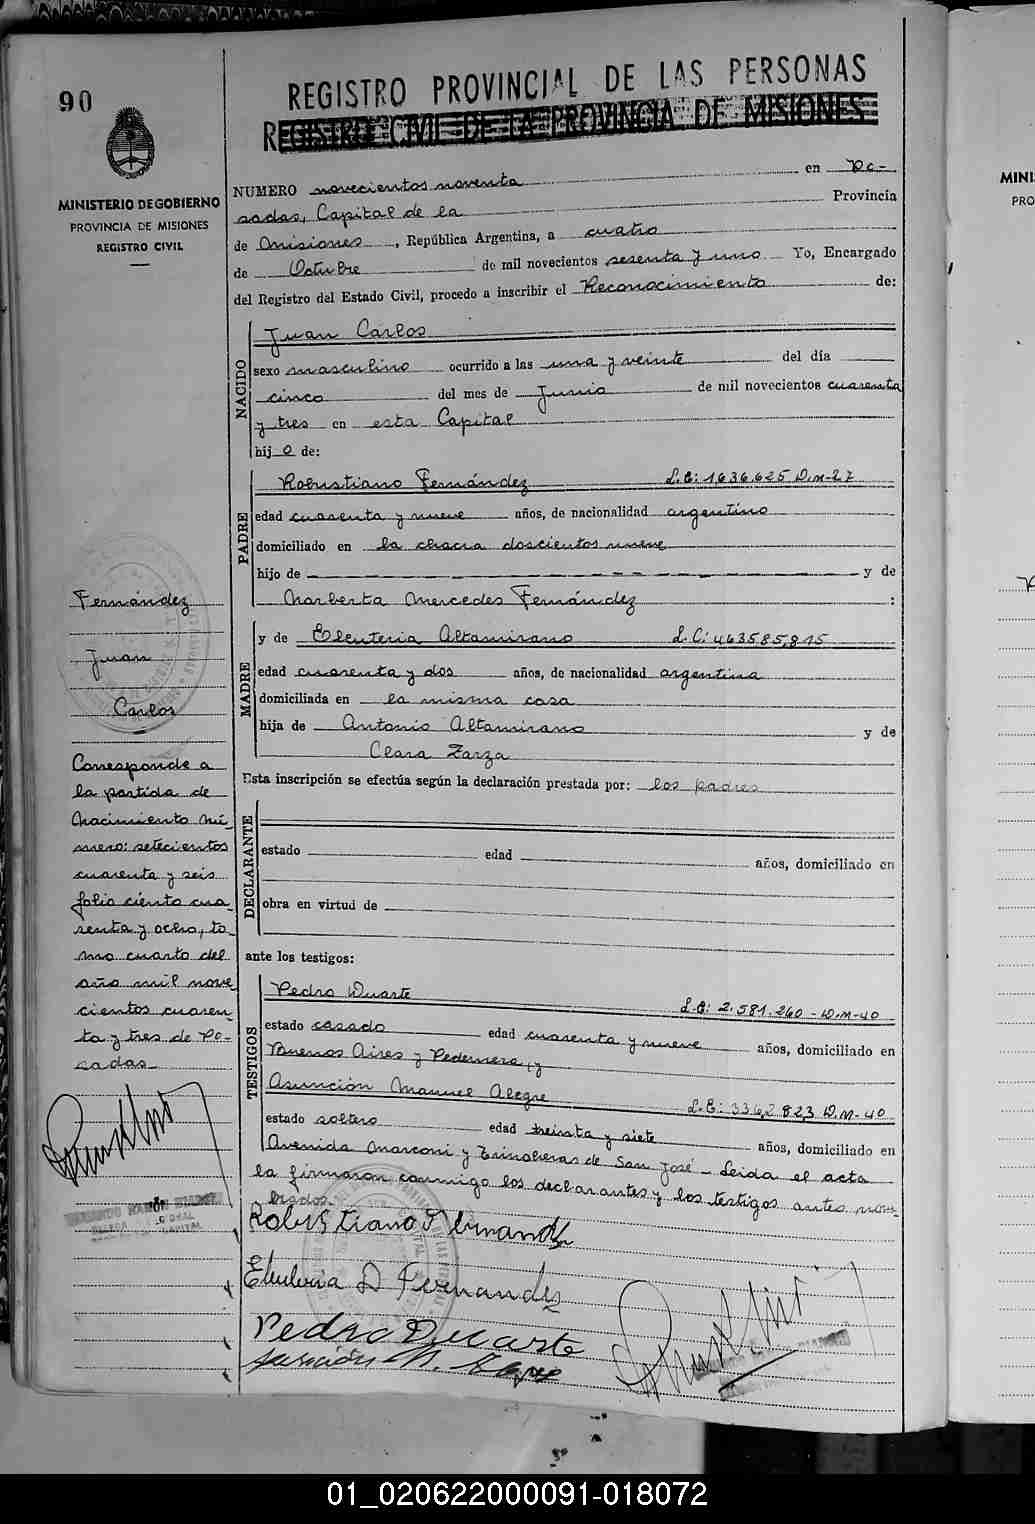 90
REGISTRO PROVINCIAL DE LAS PERSONAS
REGISTRO CIVIL DE LA PROVINCIA DE MISIONES
MINISTERIO DE GOBIERNO
PROVINCIA DE MISIONES
REGISTRO CIVIL
NUMERO novecientos noventa en Po-
sadas, Capital de la Provincia
de Misiones, República Argentina, a cuatro
de Octubre de mil novecientos sesenta y uno Yo, Encargado
del Registro del Estado Civil, procedo a inscribir el Reconocimiento de:
NACIDO
Juan Carlos
sexo masculino ocurrido a las una y veinte del día
cinco del mes de Junio de mil novecientos cuarenta
y tres en esta Capital
hijo de:
PADRE
Robustiano Fernández L.E: 1.636.625 D.M-27
edad cuarenta y nueve años, de nacionalidad argentino
domiciliado en la chacra doscientos nueve
hijo de y de
Norberta Mercedes Fernández :
MADRE
y de Eleuteria Altamirano L.C: 463585,815
edad cuarenta y dos años, de nacionalidad argentina
domiciliada en la misma casa
hija de Antonio Altamirano y de
Clara Zarza
Esta inscripción se efectúa según la declaración prestada por: los padres
DECLARANTE
estado edad años, domiciliado en
obra en virtud de
ante los testigos:
TESTIGOS
Pedro Duarte L.E: 2.581.260 - D.M-40
estado casado edad cuarenta y nueve años, domiciliado en
Buenos Aires y Pedernera, y
Asunción Manuel Alegre L.E: 3362823 D.M-40
estado soltero edad treinta y siete años, domiciliado en
Avenida Marconi y Trincheras de San José - Leida el acta
la firmaron conmigo los declarantes y los testigos antes nom-
brados.
Robustiano Fernandez
Eleuteria D Fernandez
Pedro Duarte
Asunción M. Alegre
Fernández
Juan
Carlos
Corresponde a
la partida de
Nacimiento nú-
mero: setecientos
cuarenta y seis
folio ciento cua-
renta y ocho, to-
mo cuarto del
año mil nove-
cientos cuaren-
ta y tres de Po-
sadas.
MINI
PRO
01_020622000091-018072